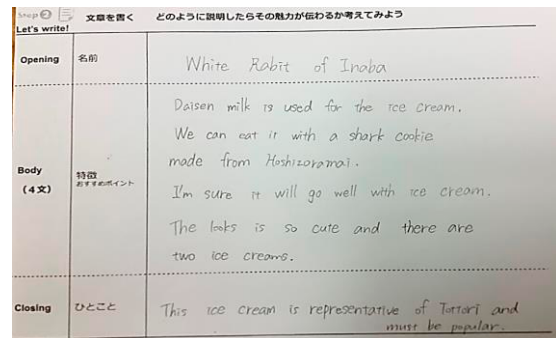 Step 2 文章を書く どのように説明したらその魅力が伝わるか考えてみよう
Let's write!
Opening 名前 White Rabit of Inaba
Body (4文) 特徴 おすすめポイント
Daisen milk is used for the ice cream.
We can eat it with a shark cookie
made from Hoshizoramai.
I'm sure it will go well with ice cream.
The looks is so cute and there are
two ice creams.
Closing ひとこと This ice cream is representative of Tottori and
must be popular.